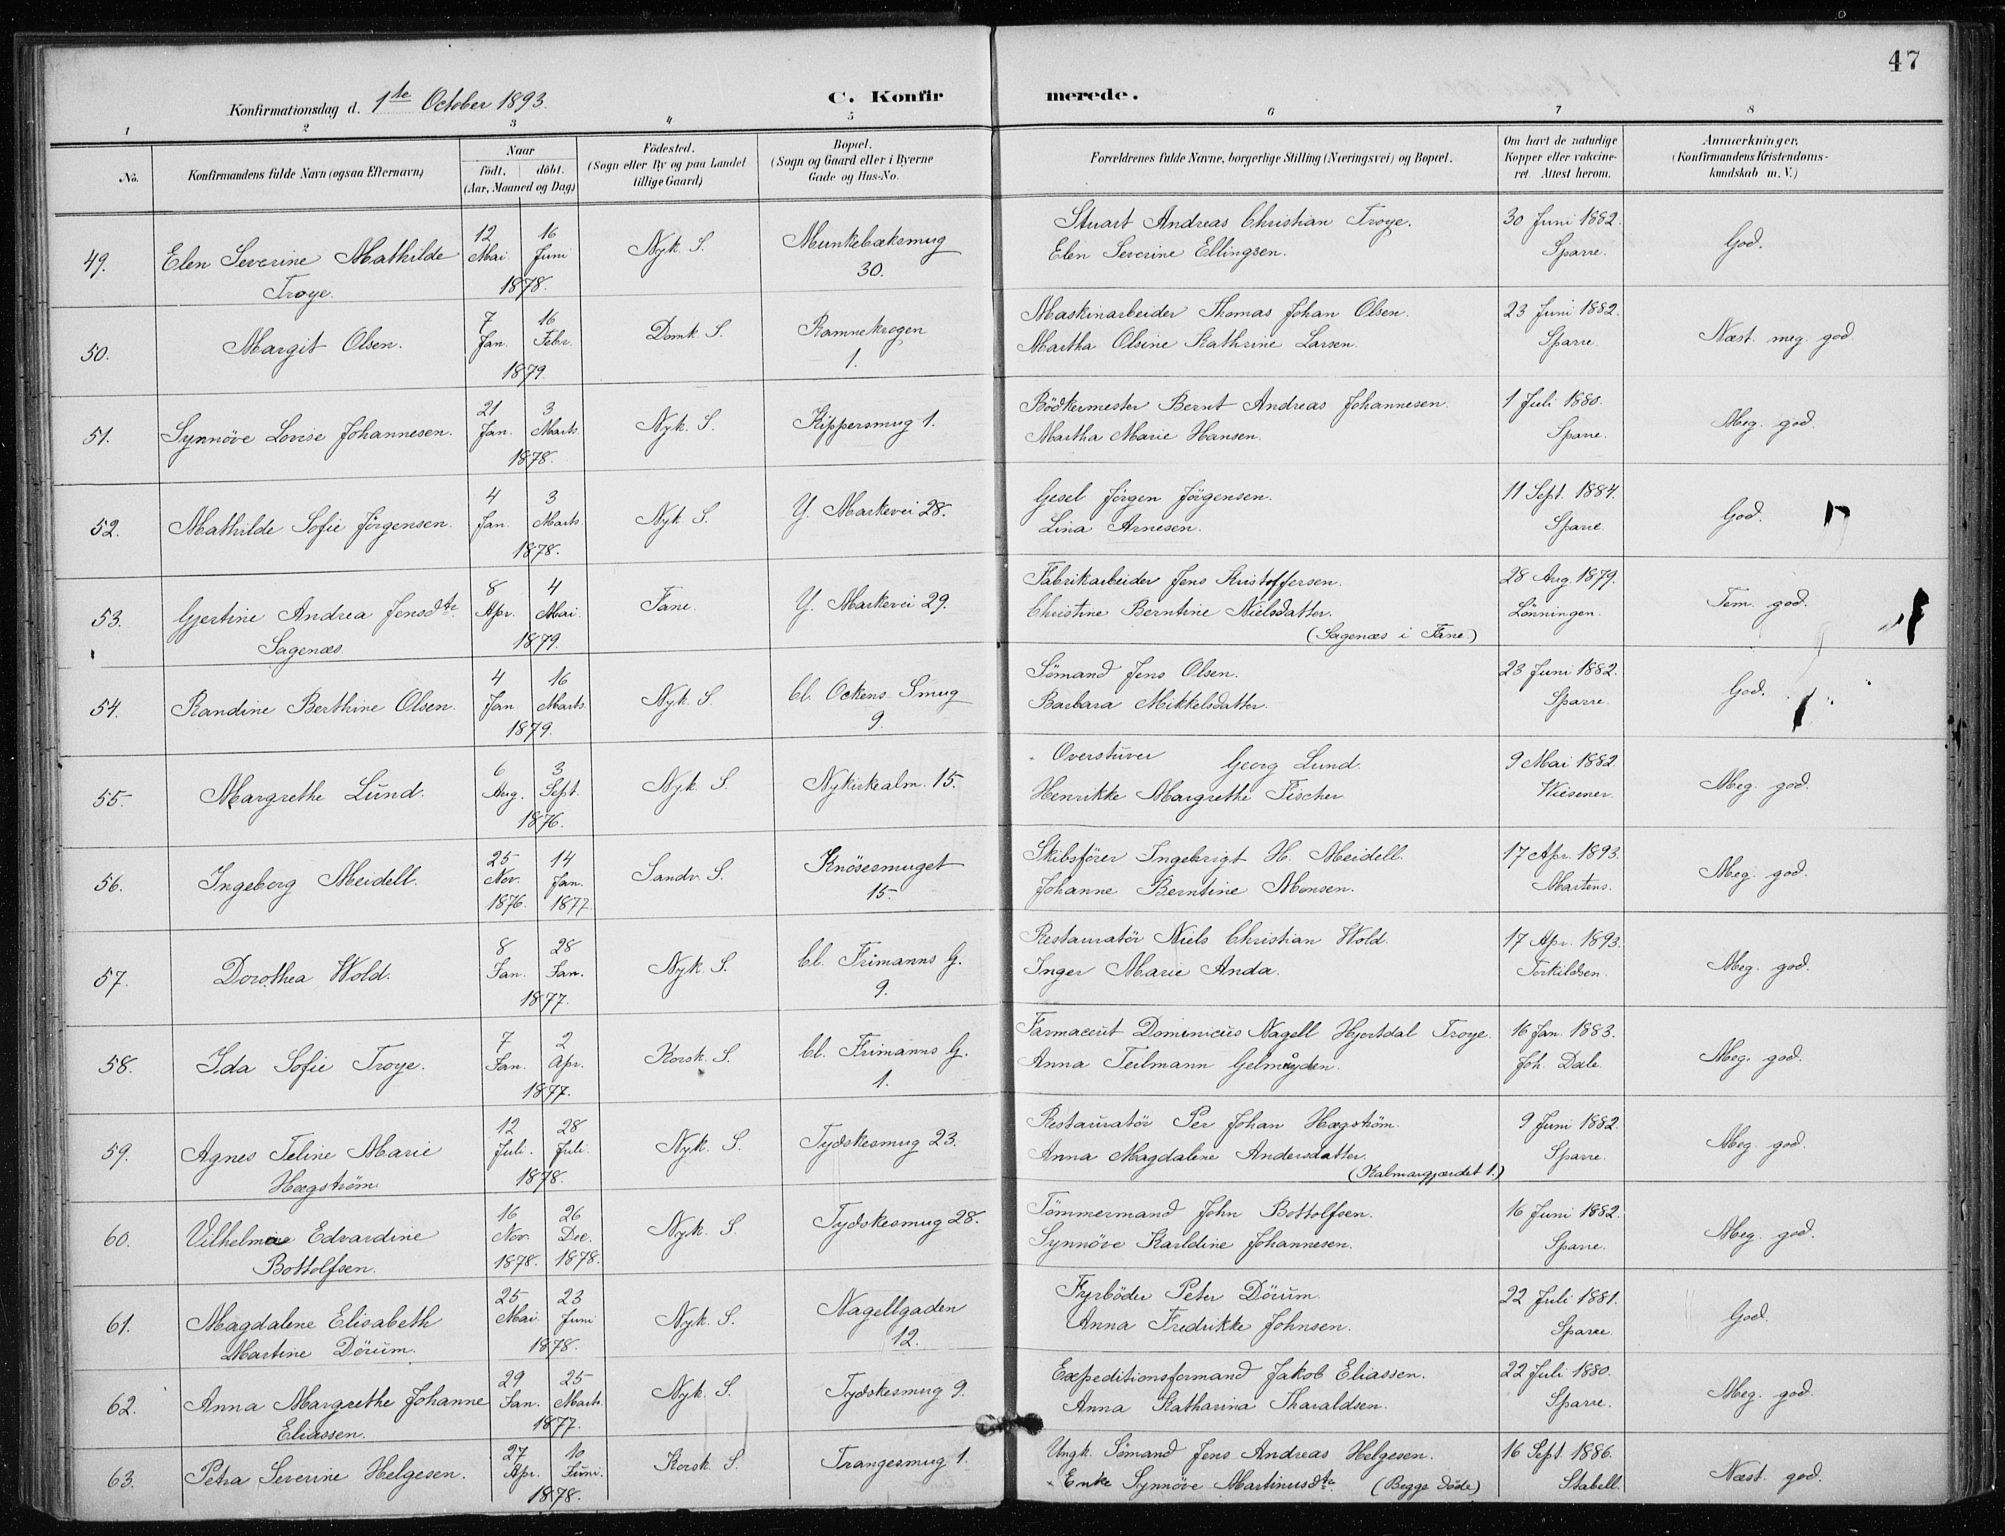 47
Konfirmationsdag d. 1ste October 1893.
C. Konfirmerede.
1 2 3 4 5 6 7 8
No.
Konfirmandens fulde Navn (ogsaa Efternavn)
Naar
födt. döbt.
(Aar, Maaned og Dag)
Födested.
(Sogn eller By og paa Landet
tillige Gaard)
Bopæl.
(Sogn og Gaard eller i Byerne
Gade og Hus-No.
Forældrenes fulde Navne, borgerlige Stilling (Næringsvei) og Bopæl.
Om havt de naturlige
Kopper eller vakcine-
ret. Attest herom.
Anmærkninger.
(Konfirmandens Kristendoms-
kundskab m. V.)
49. Elen Severine Mathilde
Troye.
12 Mai 16 Juni
1878.
Nyk. S.
Munkebæksmug
30.
Stuart Andreas Christian Troye.
Elen Severine Ellingsen.
30 Juni 1882.
Sparre.
God.
50. Margit Olsen.
7 Jan. 16 Febr.
1879
Domk. S.
Ramnekrogen
1.
Maskinarbeider Thomas Johan Olsen.
Martha Olsine Kathrine Larsen.
23 Juni 1882.
Sparre.
Næst. meg. god.
51. Synnöve Lovise Johannesen.
21 Jan. 3 Marts
1878.
Nyk. S.
Kippersmug 1.
Bödkermester Bernt Andreas Johannesen.
Martha Marie Hansen.
1 Juli 1880.
Sparre.
Meg. god.
52. Mathilde Sofie Jörgensen.
4 Jan. 3 Marts
1878.
Nyk. S.
Y. Markevei 28.
Gesel Jörgen Jörgensen.
Lina Arnesen.
11 Sept. 1884.
Sparre.
God.
53. Gjertine Andrea Jensdte
Sagenæs
8 Apr. 4 Mai.
1879.
Fane.
Y. Markevei 29.
Fabrikarbeider Jens Kristoffersen.
Christine Berntine Nielsdatter.
(Sagenæs i Fane)
28 Aug. 1879.
Lönningen.
Tem. god.
54. Randine Berthine Olsen.
4 Jan 16 Marts.
1879.
Nyk. S.
Cl. Ockens Smug
9
Sömand Jens Olsen.
Barbara Mikkelsdatter.
23 Juni 1882.
Sparre.
God.
55. Margrethe Lund.
6 Aug. 3 Sept.
1876.
Nyk. S.
Nykirkealm. 15.
Overstuver Georg Lund.
Henrikke Margrethe Fischer
9 Mai 1882.
Wiesener.
Meg. god.
56. Ingeborg Meidell.
25 Nov. 1876. 14 Jan. 1877.
Sandv. S.
Knösesmuget
15.
Skibsförer Ingebrigt H. Meidell.
Johanne Berntine Monsen.
17 Apr. 1893.
Martens.
Meg. god.
57. Dorothea Wold.
8 Jan. 28 Jan.
1877.
Nyk. S.
Cl. Frimanns G.
9.
Restauratör Niels Christian Wold.
Inger Marie Anda.
17 Apr. 1893.
Torkildsen.
Meg. god.
58. Ida Sofie Troye.
7 Jan. 2 Apr.
1877.
Korsk. S.
Cl. Frimanns G.
1.
Farmaceut Dominicus Nagell Hjortdal Troye.
Anna Teilmann Gelmüyden.
16 Jan. 1883.
Joh. Dale.
Meg. god.
59. Agnes Teline Marie
Hægström
12 Juli. 28 Juli.
1878.
Nyk. S.
Tydskesmug 23.
Restauratör Per Johan Hægström.
Anna Magdalene Andersdatter.
(Kalmargjærdet 1.)
9 Juni 1882.
Sparre.
Meg. god.
60. Vilhelmine Edvardine
Bottolfsen.
16 Nov. 1878. 26 Dec. 1878.
Nyk. S.
Tydskesmug 28.
Tömmermand John Bottolfsen.
Synnöve Karldine Johannesen.
16 Juni 1882.
Sparre.
Meg. god.
61. Magdalene Elisabeth
Martine Dörum.
25 Mai 23 Juni
1878.
Nyk. S.
Nagellgaden
12.
Fyrböder Peter Dörum.
Anna Fredrikke Johnsen.
22 Juli 1881.
Sparre.
God.
62. Anna Margrethe Johanne
Eliassen.
29 Jan. 25 Marts.
1877.
Nyk. S.
Tydskesmug 9.
Expeditionsformand Jakob Eliassen.
Anna Katharina Tharaldsen.
22 Juli 1880.
Sparre.
Meg. god.
63. Petra Severine Helgesen.
27 Apr. 10 Juni.
1878.
Korsk. S.
Trangesmug 1.
Ungk. Sömand Jens Andreas Helgesen.
Enke Synnöve Martinusdtr. (Begge Döde)
16 Sept 1886.
Stabell.
Næst. god.